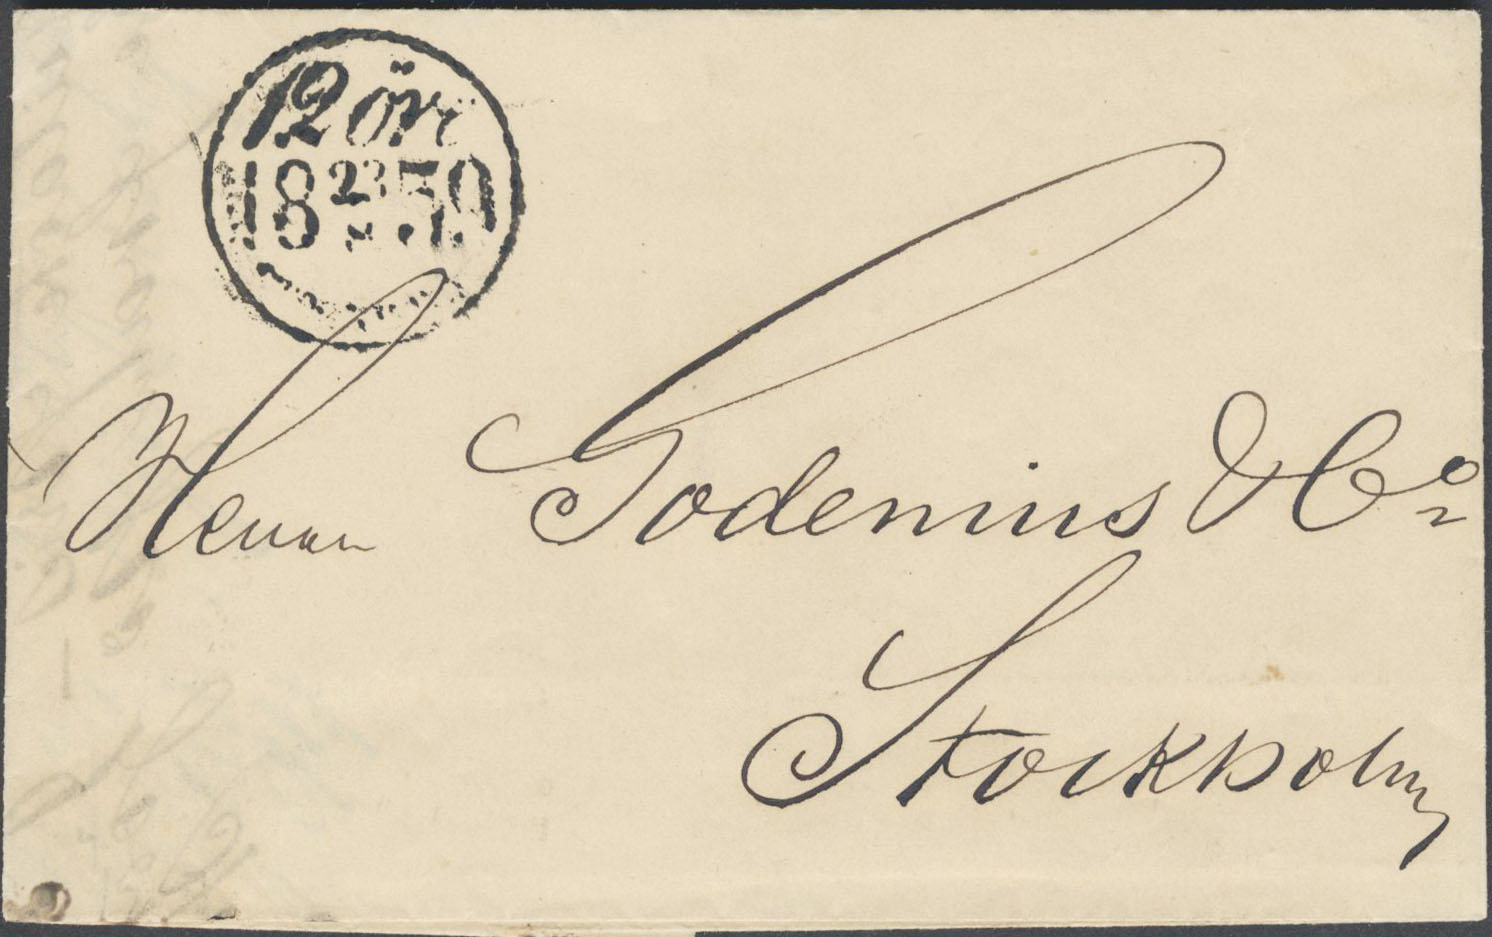 12 öre
18 23 59
Herrar Godenius & Co
Stockholm